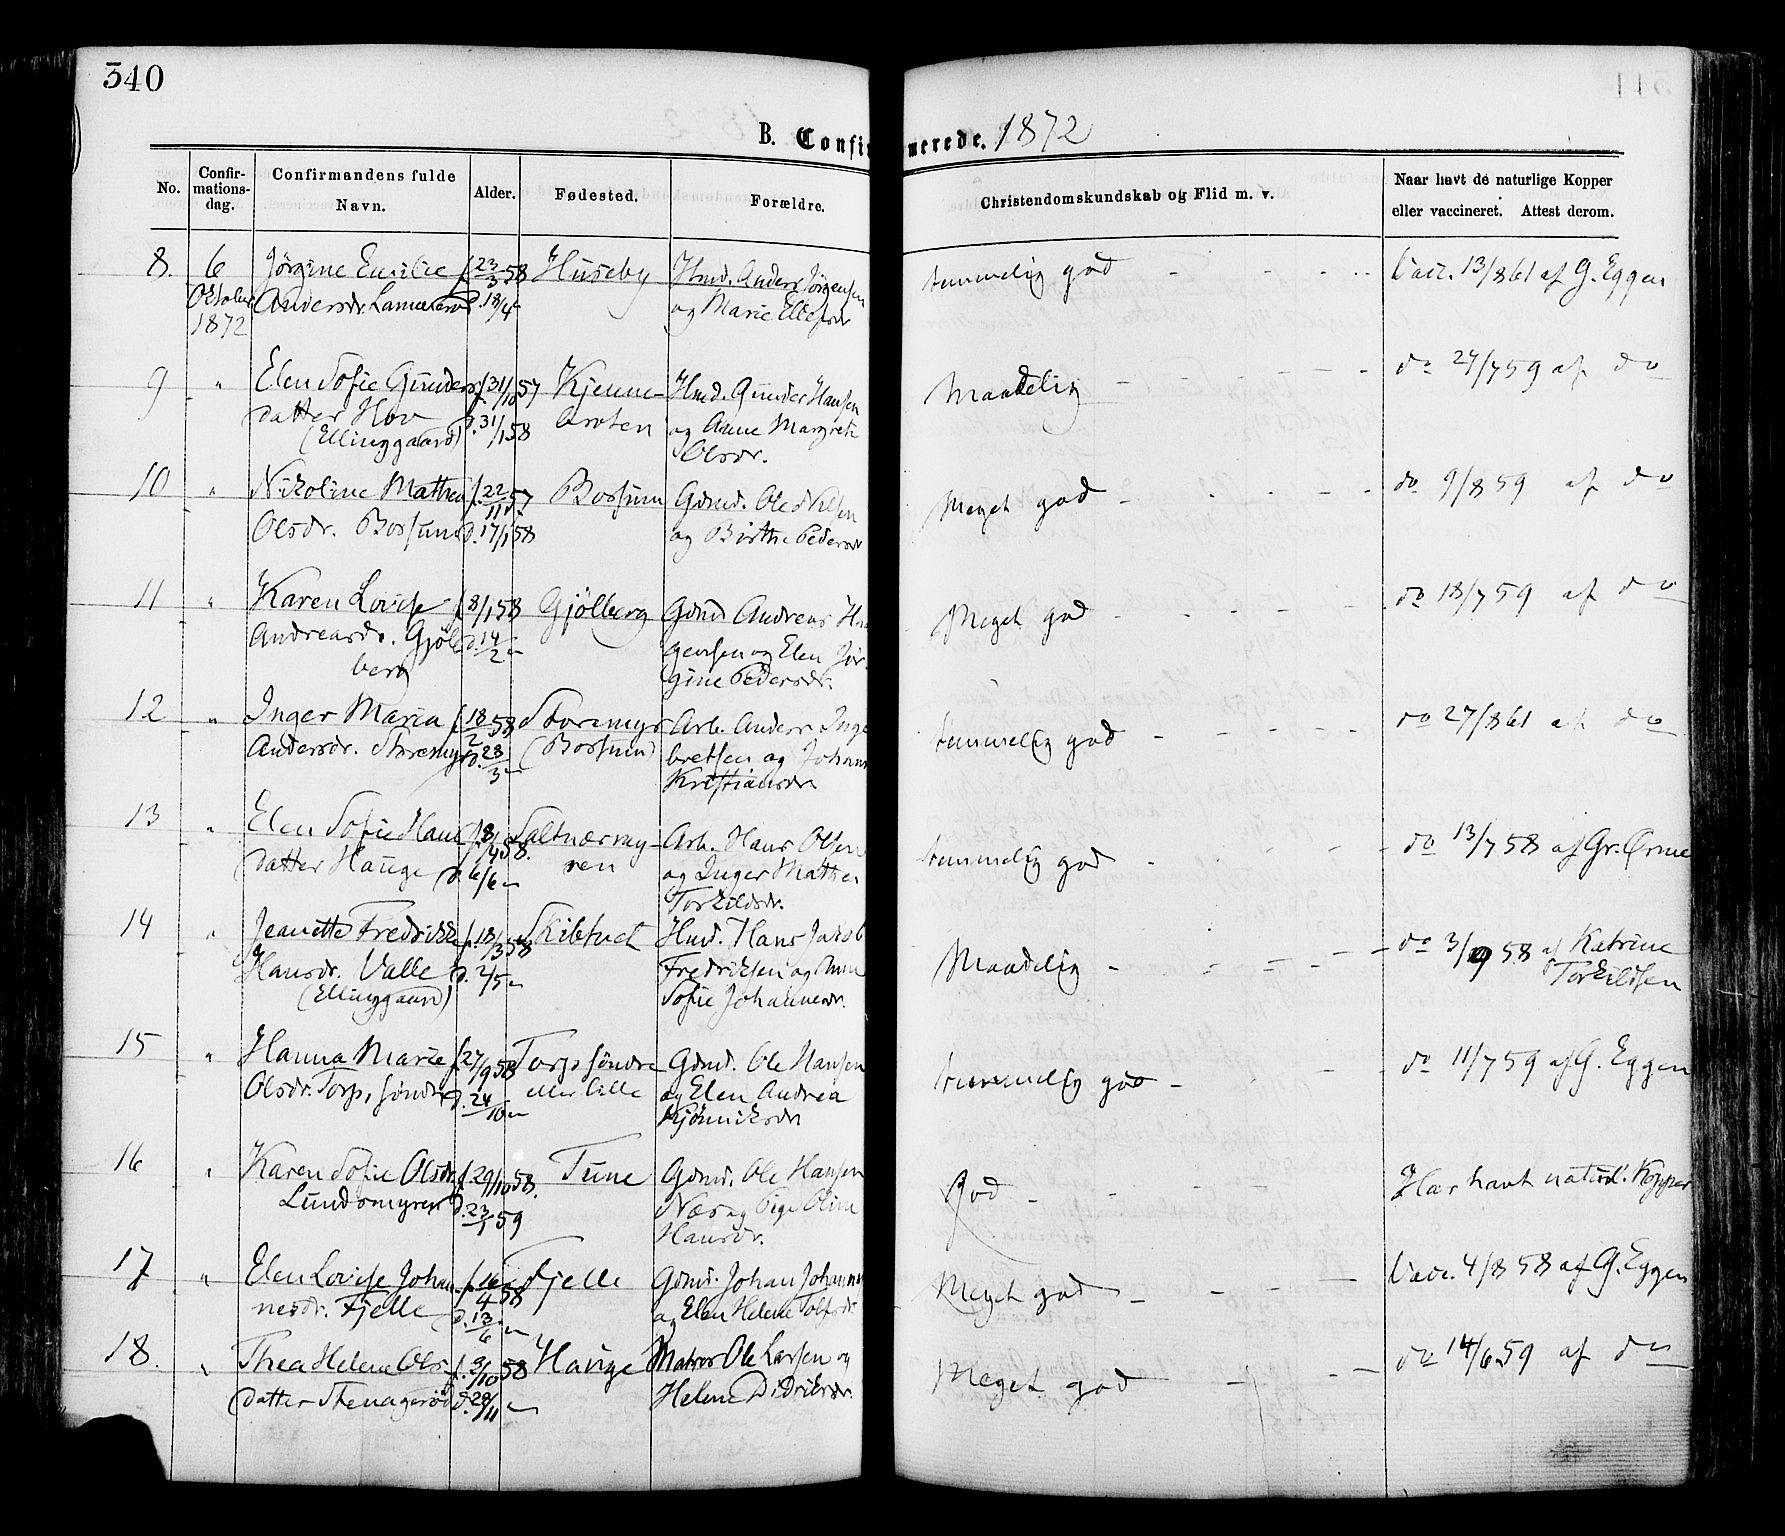 340
B. Confirmerede. 1872
No.
Confir-
mations-
dag.
Confirmandens fulde
Navn.
Alder.
Fødested.
Forældre.
Christendomskundskab og Flid m. v.
Naar havt de naturlige Kopper
eller vaccineret. Attest derom.
8. 6 Jørgine Emilie f. 23/3 58 Huseby Hmd. Anders Jørgensen temmelig god - - - Vacc. 13/8 61 af G. Eggen
Oktober Andersdr. d. 18/4 og Marie Ellefsdr
1872
9 " Elen Sofie Gunders f. 31/10 57 Kjenne- Hmd. Gunder Hansen Maadelig - - - do 27/7 59 af do
datter Hov d. 31/1 58 braten og Anne Margrete
(Ellinggaard) Olsdr.
10 " Nikoline Mathea f. 22/11 57 Bossum Gdmd. Ole Nilsen Meget god - - - do 9/8 59 af do
Olsdr. Bossum d. 17/1 58 og Birthe Pedersdr
11 " Karen Lovise f. 8/1 58 Gjølberg Gdmd Andreas Haa Meget god - - - do 18/7 59 af do
Andreasdr. Gjøl d. 14/2 " gensen og Elen Jør-
berg gine Pedersdr.
12 " Inger Maria f. 18/2 58 Storemyr Arb. Anders Inge temmelig god - - - do 27/8 61 af do
Andersdr. Storemyr d. 28/3 " (Bossum) bretsen og Johanne
Kristiansdr
13 " Elen Sofie Hans f. 8/4 58. Saltnæsmy- Arb. Hans Olsen temmelig god - - - do 13/7 58 af Gr. Ørme
datter Hauge d. 6/6 " ren og Inger Mathea
Torkildsdr.
14 " Jeanette Fredrikke f. 18/3 58 Skibtvet Hmd. Hans Jakob Maadelig - - - do 3/9 58 af Katrine
Hansdr. Valle d. 2/5 " Fredriksen og Anne Torkildsen
(Ellinggaard) Sofie Johannesdr.
15 " Hanna Marie f. 27/9 58 Torp søndre Gdmd. Ole Hansen temmelig god - - - do 11/7 59 af G. Eggen
Olsdr. Torp, søndre d. 24/10 " eller lille og Elen Andrea
Kjønniksdr
16 " Karen Sofie Olsdr f. 29/10 58. Tune Gdmd. Ole Hansen God - - - Har havt naturl. Kopper
Lundsmyren d. 23/1 59 Næs og Pige Oline
Hansdr.
17 " Elen Lovise Johan f. 16/4 58 Fjelle Gdmd. Johan Johannes Meget god - - - Vacc. 4/8 58 af G. Eggen
nesdr. Fjelle d. 13/6 " og Elen Helene Tolfsdr
18. " Thea Helene Ols f. 3/10 58 Hauge Matros Ole Larsen og Meget god - - - do 14/6 59 af do
datter Stenagerød d. 28/11 " Helene Didriksdr.